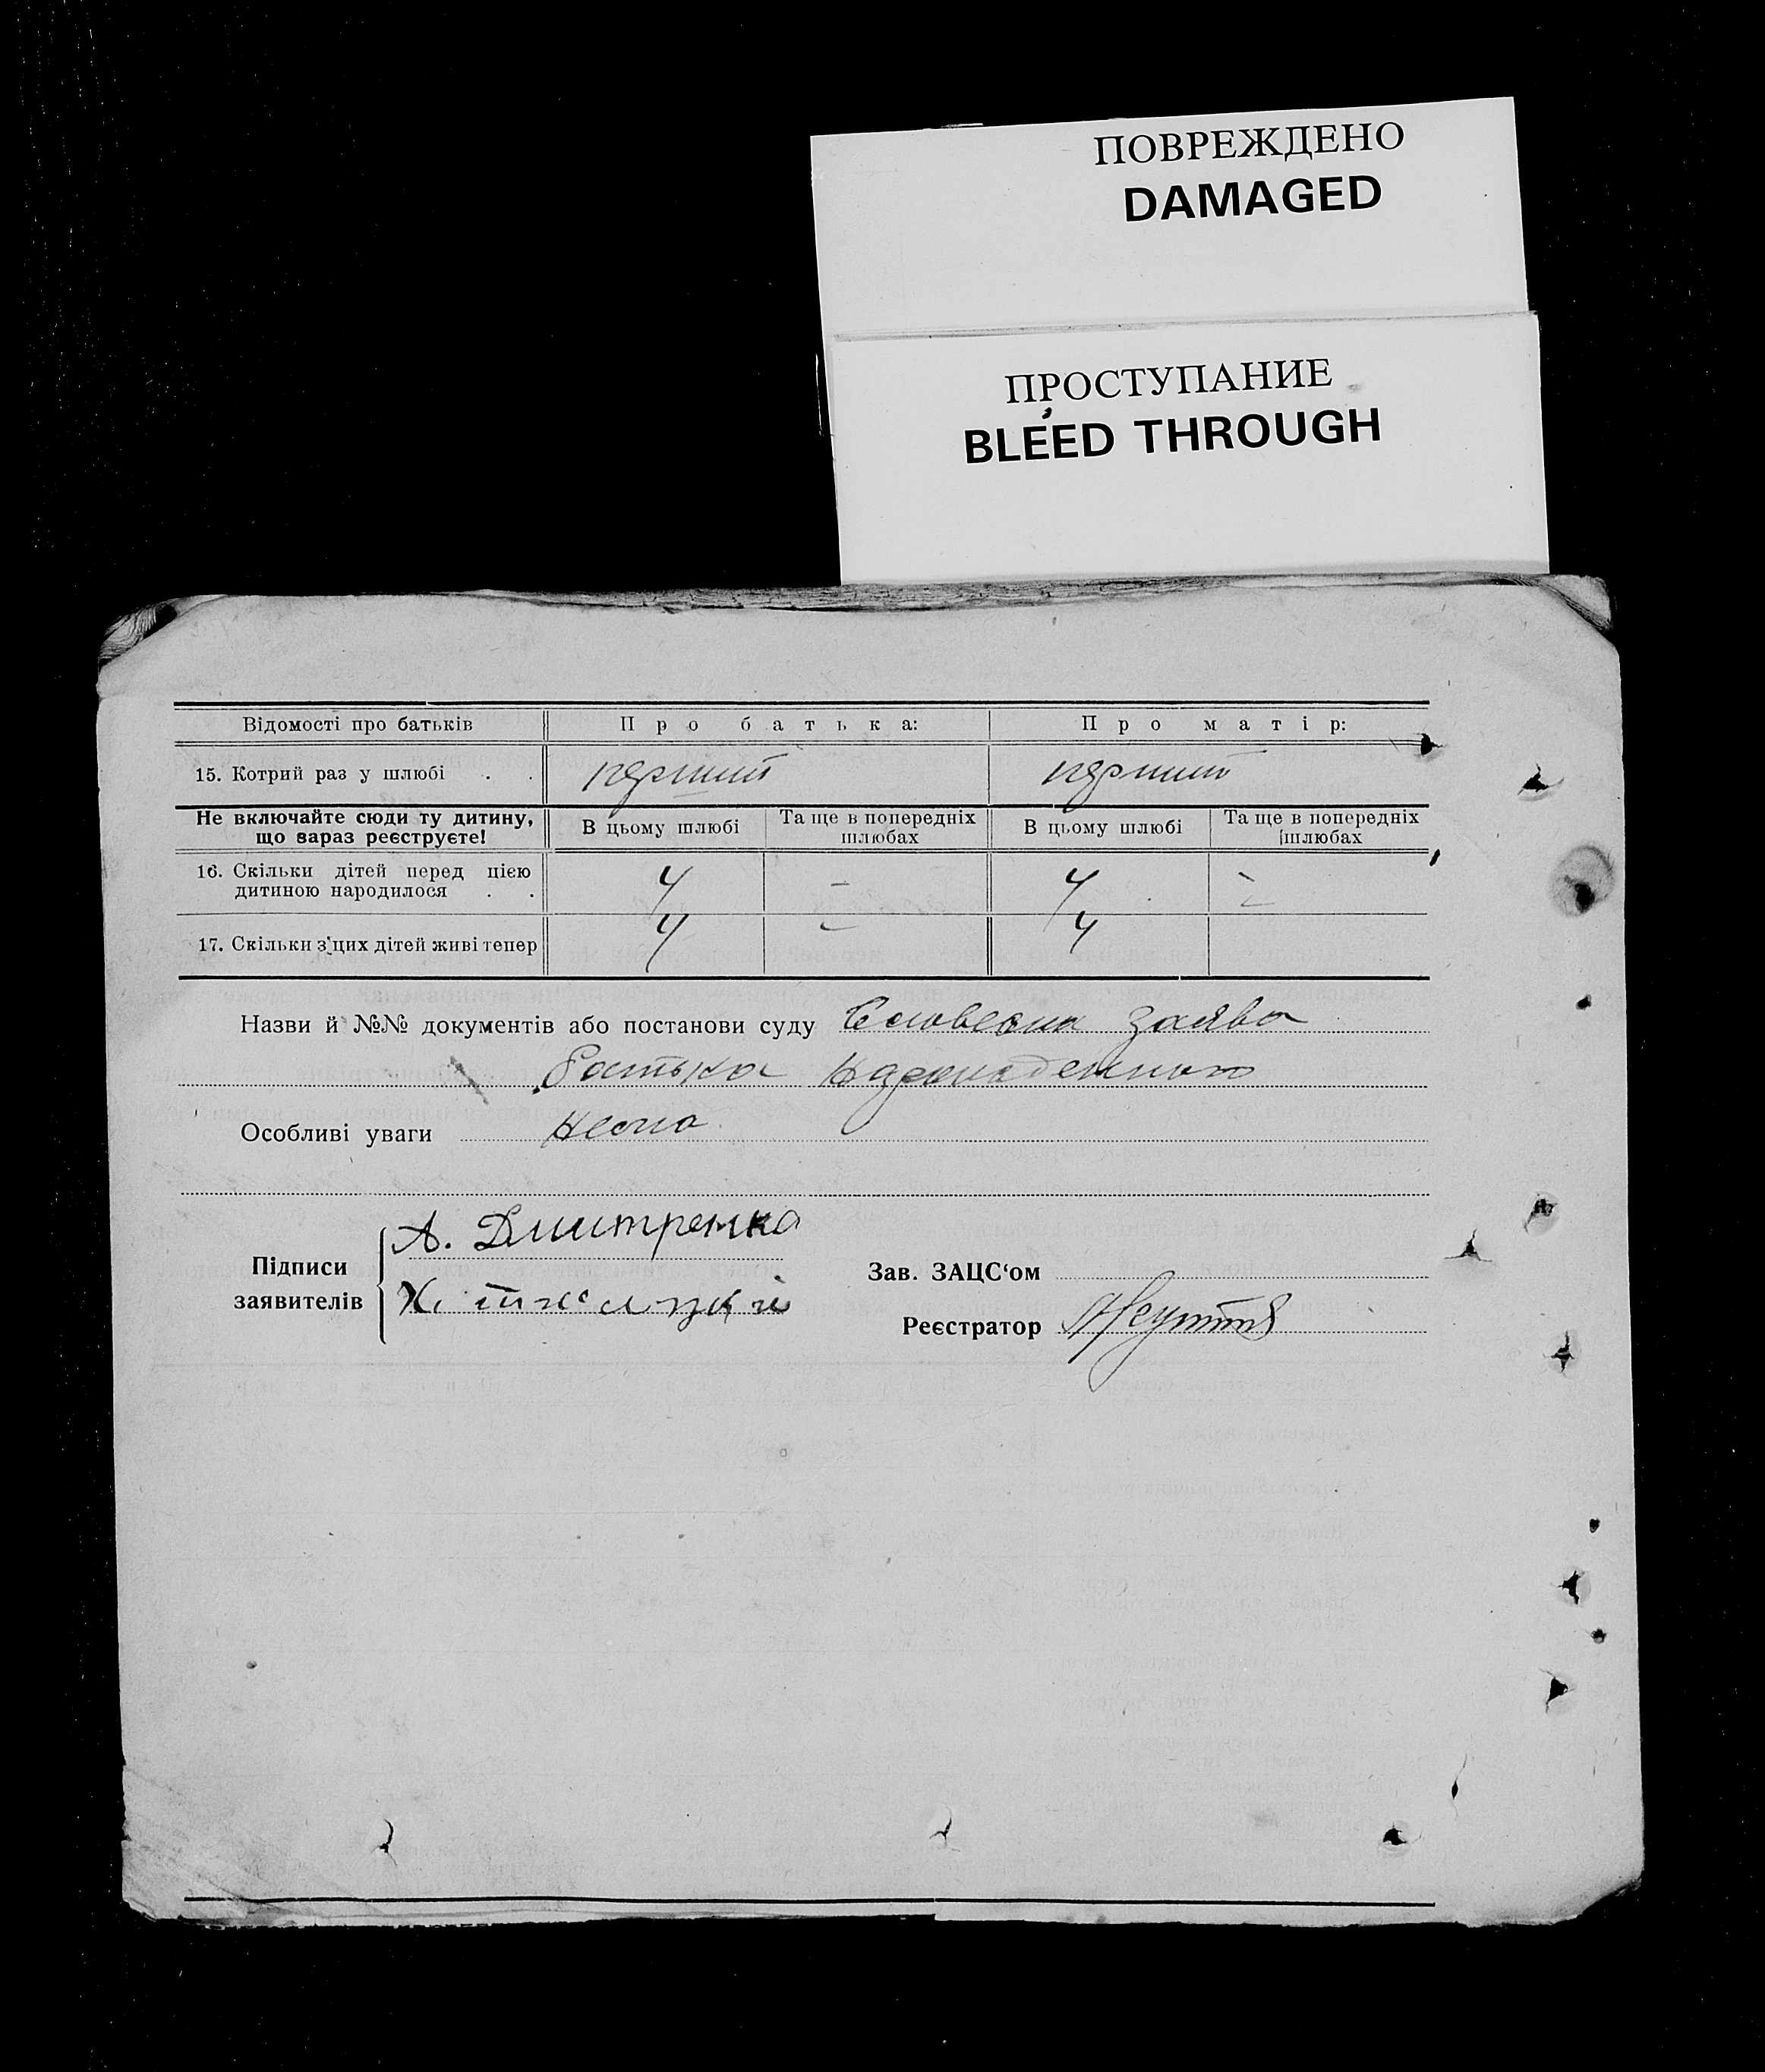 ПОВРЕЖДЕНО
DAMAGED
ПРОСТУПАНИЕ
BLEED THROUGH
Відомості про батьків Про батька: Про матір:
15. Котрий раз у шлюбі . . перший перший
Не включайте сюди ту дитину, що вараз реєструєте! В цьому шлюбі Та ще в попередніх шлюбах В цьому шлюбі Та ще в попередніх шлюбах
16. Скільки дітей перед цією дитиною народилося . . 4 – 4 –
17. Скільки з'цих дітей живі тепер 4 – 4
Назви й №№ документів або постанови суду Словесна заява
батька
Особливі уваги нема
Підписи заявителів
А. Дмитренко
Зав. ЗАЦС'ом
Х.
Реєстратор